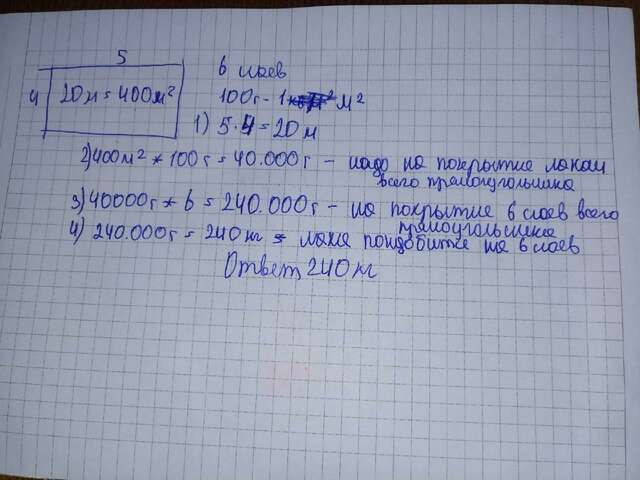 5
4
20м = 400м²
6 слоев
100г - 1 м²
1) 5·4 = 20м
2) 400м² * 100г = 40.000г - надо на покрытие лаком
всего прямоугольника
3) 40000г * 6 = 240.000г - на покрытие 6 слоев всего
прямоугольника
4) 240.000г = 240кг = лака пондобитке на 6 слоев
Ответ 240кг